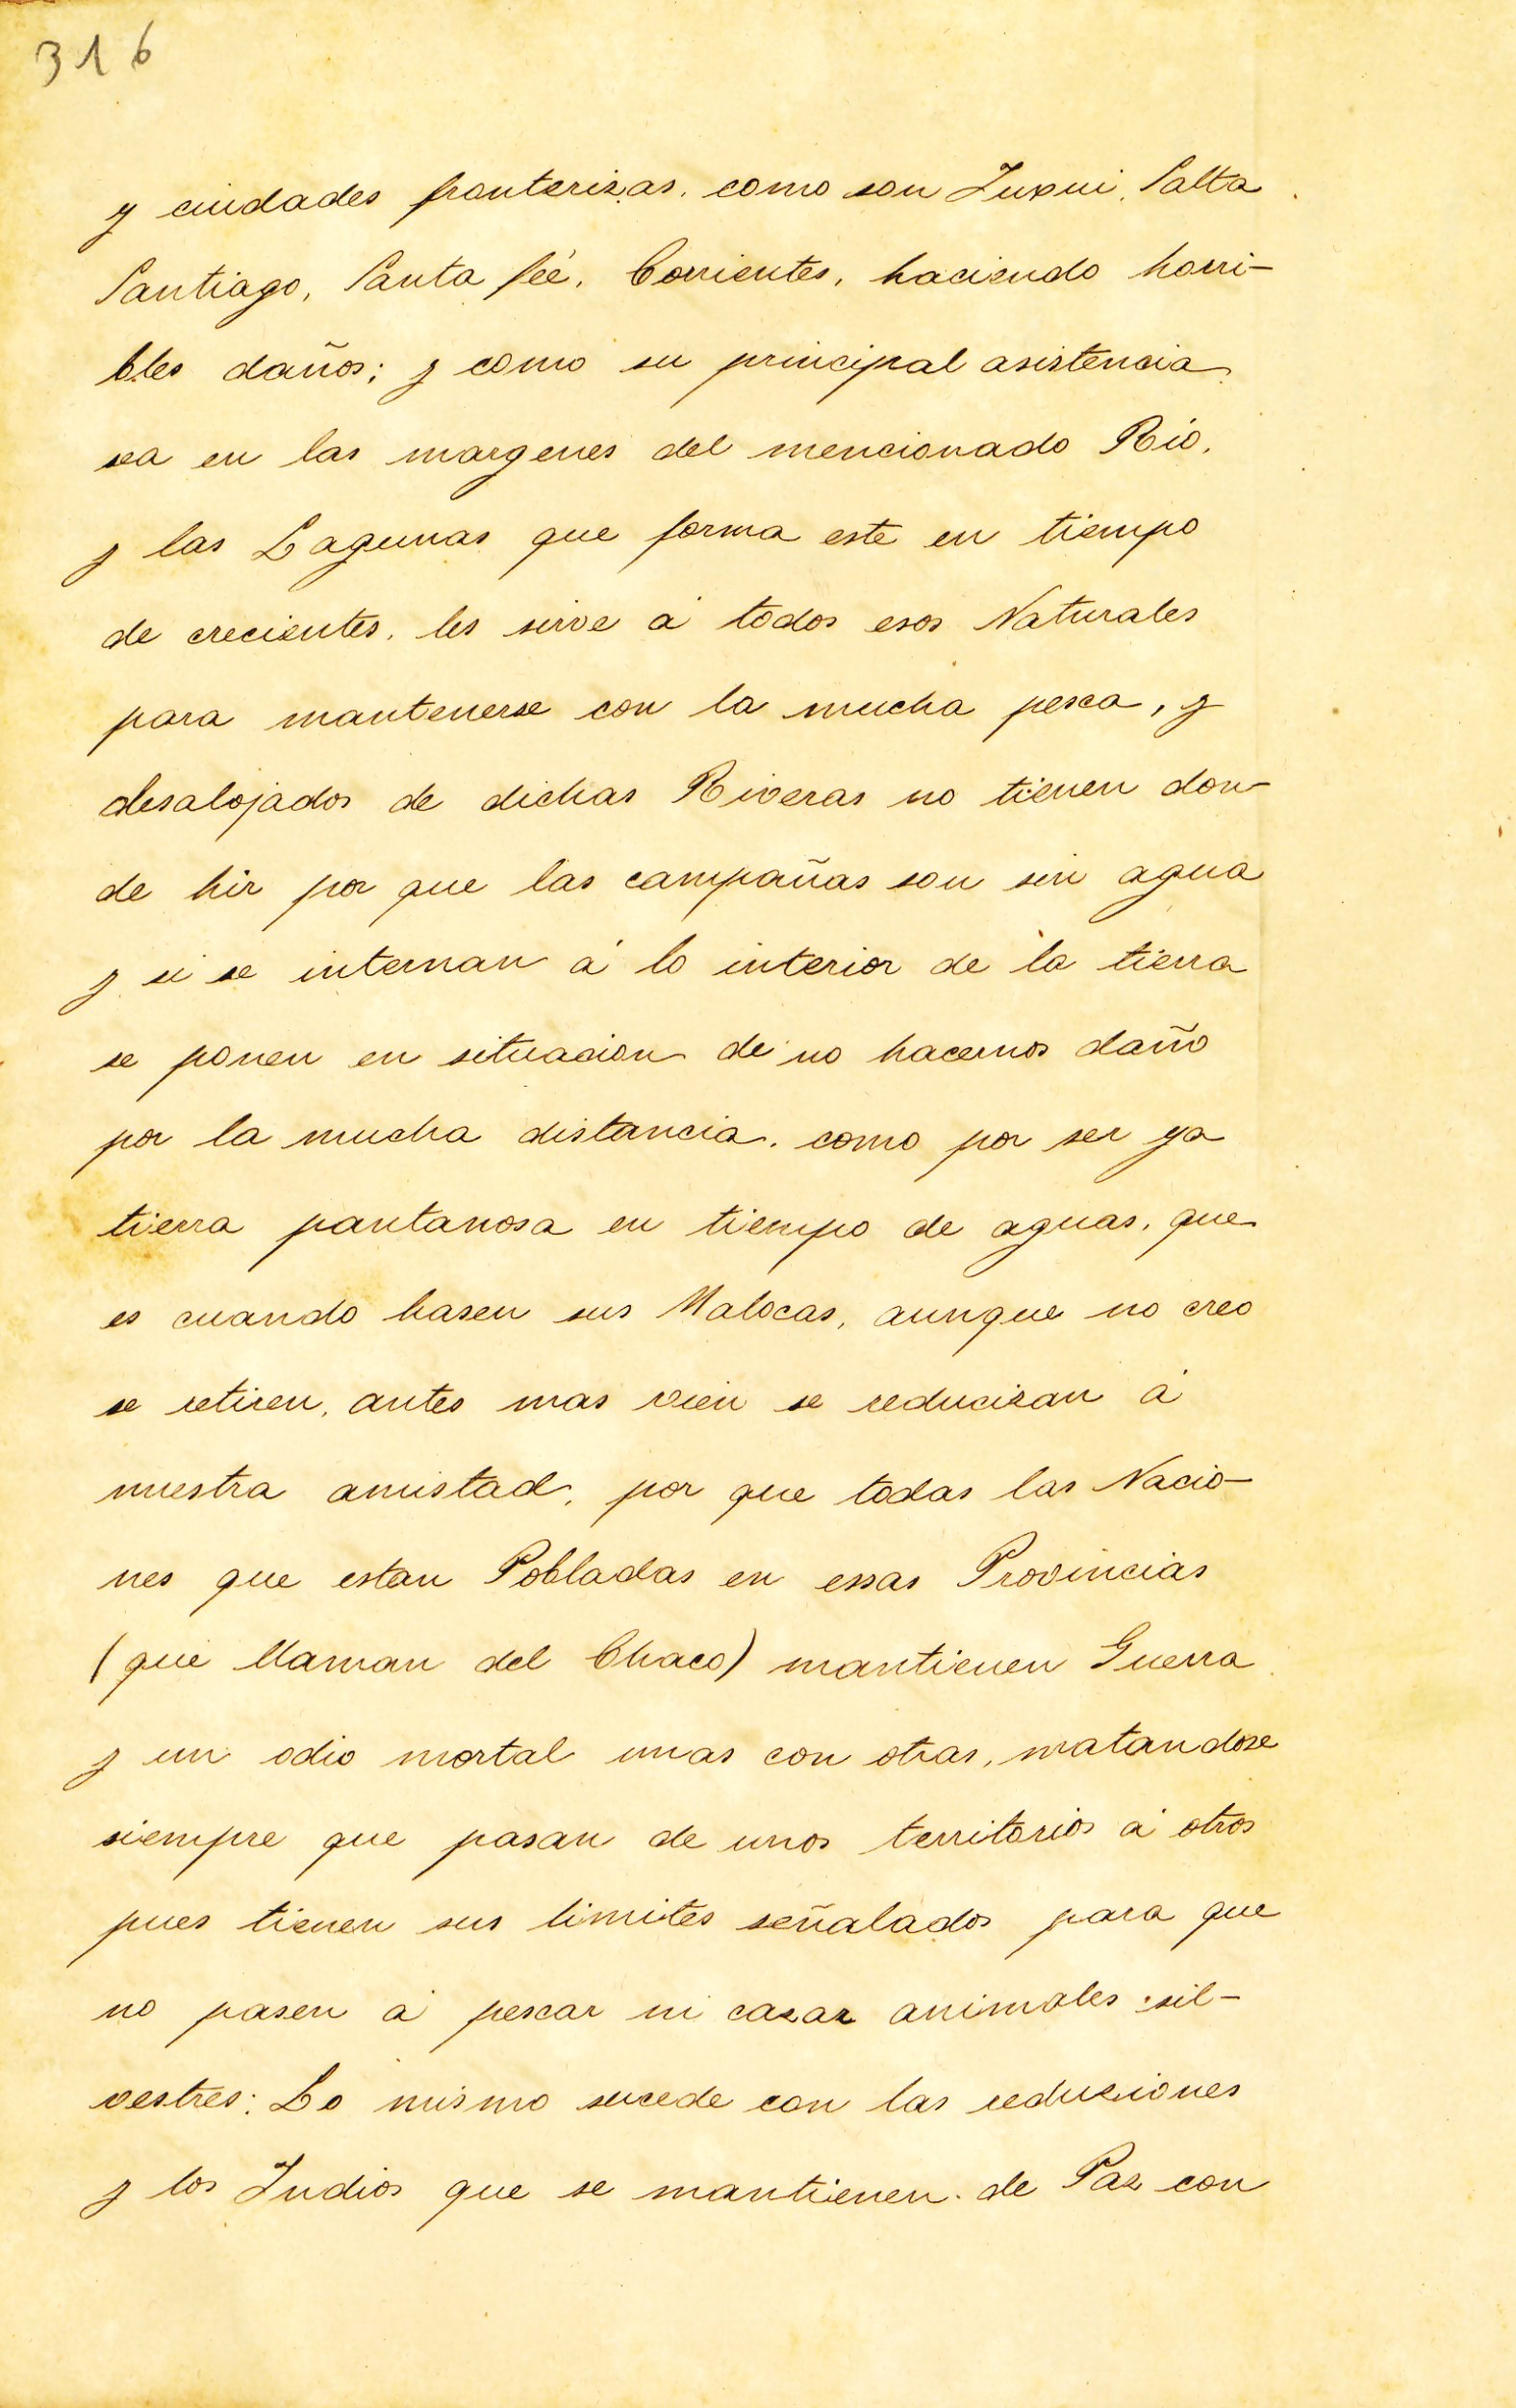 316
y ciudades fronterizas, como son Juxui, Salta
Santiago, Santa feé, Corrientes, haciendo horri-
bles daños; y como su principal asistencia
sea en las margenes del mencionado Rio,
y las Lagunas que forma este en tiempo
de crecientes, les sirve á todos esos Naturales
para mantenerse con la mucha pesca, y
desalojados de dichas Riveras no tienen don-
de hir por que las campañas son sin agua
y si se internan á lo interior de la tierra
se ponen en situacion de no hacernos daño
por la mucha distancia, como por ser ya
tierra pantanosa en tiempo de aguas, que
es cuando hasen sus Malocas, aunque no creo
se retiren, antes mas vien se reduciran á
nuestra amistad, por que todas las Nacio-
nes que estan Pobladas en essas Provincias
(que llaman del Chaco) mantienen Guerra
y un odio mortal unas con otras, matandose
siempre que pasan de unos territorios á otros
pues tienen sus limites señalados para que
no pasen á pescar ni cazar animales sil-
vestres: Lo mismo sucede con las reduziones
y los Indios que se mantienen de Paz con